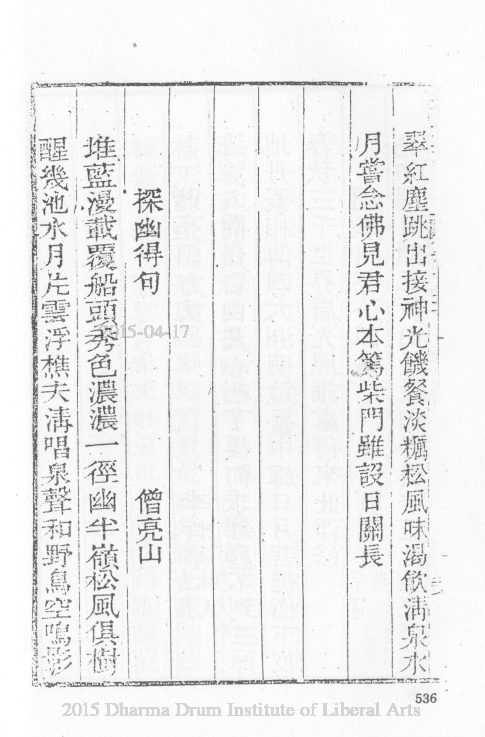 翠紅塵跳出接神光饑餐淡糲松風味渴飲清泉水
月嘗念佛見君心本篤柴門雖設日關長
探幽得句　僧亮山
堆藍漫載覆船頭秀色濃濃一徑幽半嶺松風俱樹
醒幾池水月片雲浮樵夫清唱泉聲和野鳥空鳴影
2015-04-17
536
2015 Dharma Drum Institute of Liberal Arts